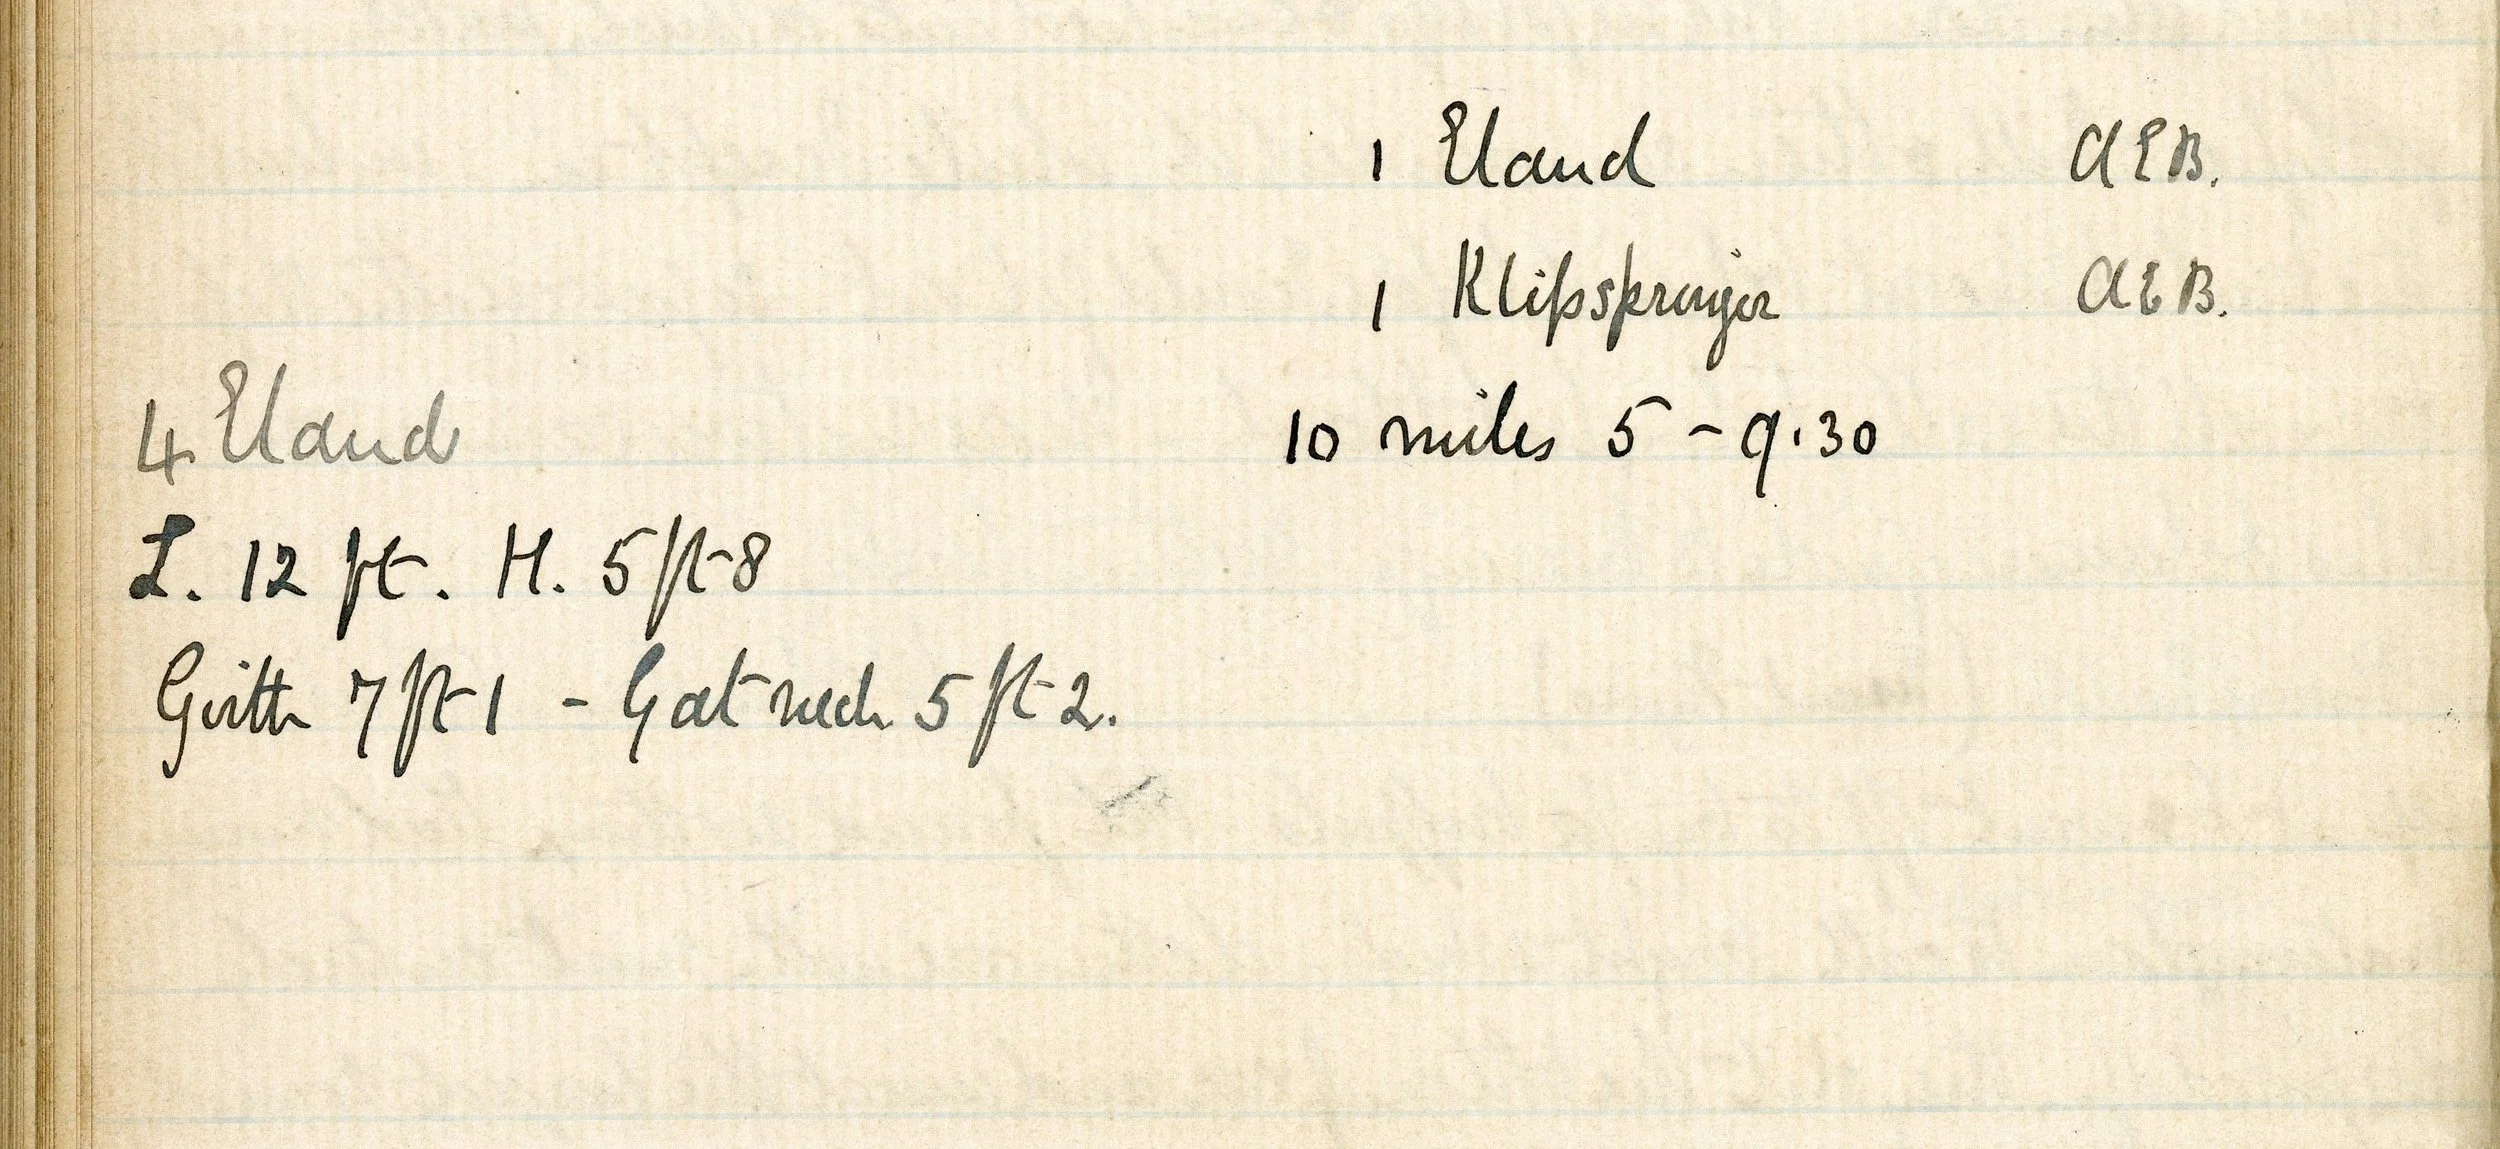 1 Eland A E B.
1 Klipspringer A E B.
10 miles 5 - 9.30
4 Eland
L. 12 ft. H. 5 ft 8
Girth 7 ft 1 - G at neck 5 ft 2.